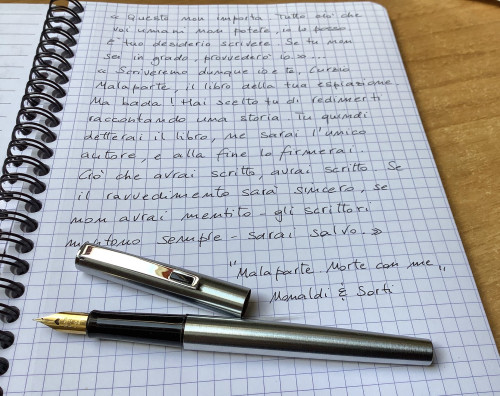 « Questo non importa Tutto ciò che
voi umani non potere, io lo posso
È tuo desiderio scrivere. Se tu non
sei in grado, provvederò io. » ...
« Scriveremo dunque io e te, Curzio
Malaparte, il libro della tua espiazione.
Ma bada! Hai scelto tu di redimerti
raccontando una storia Tu quindi
detterai il libro, ne sarai l'unico
autore, e alla fine lo firmerai.
Ciò che avrai scritto, avrai scritto Se
il ravvedimento sarà sincero, se
non avrai mentito - gli scrittori
mentono sempre - sarai salvo. »
"Malaparte Morte come me"
Monaldi & Sorti